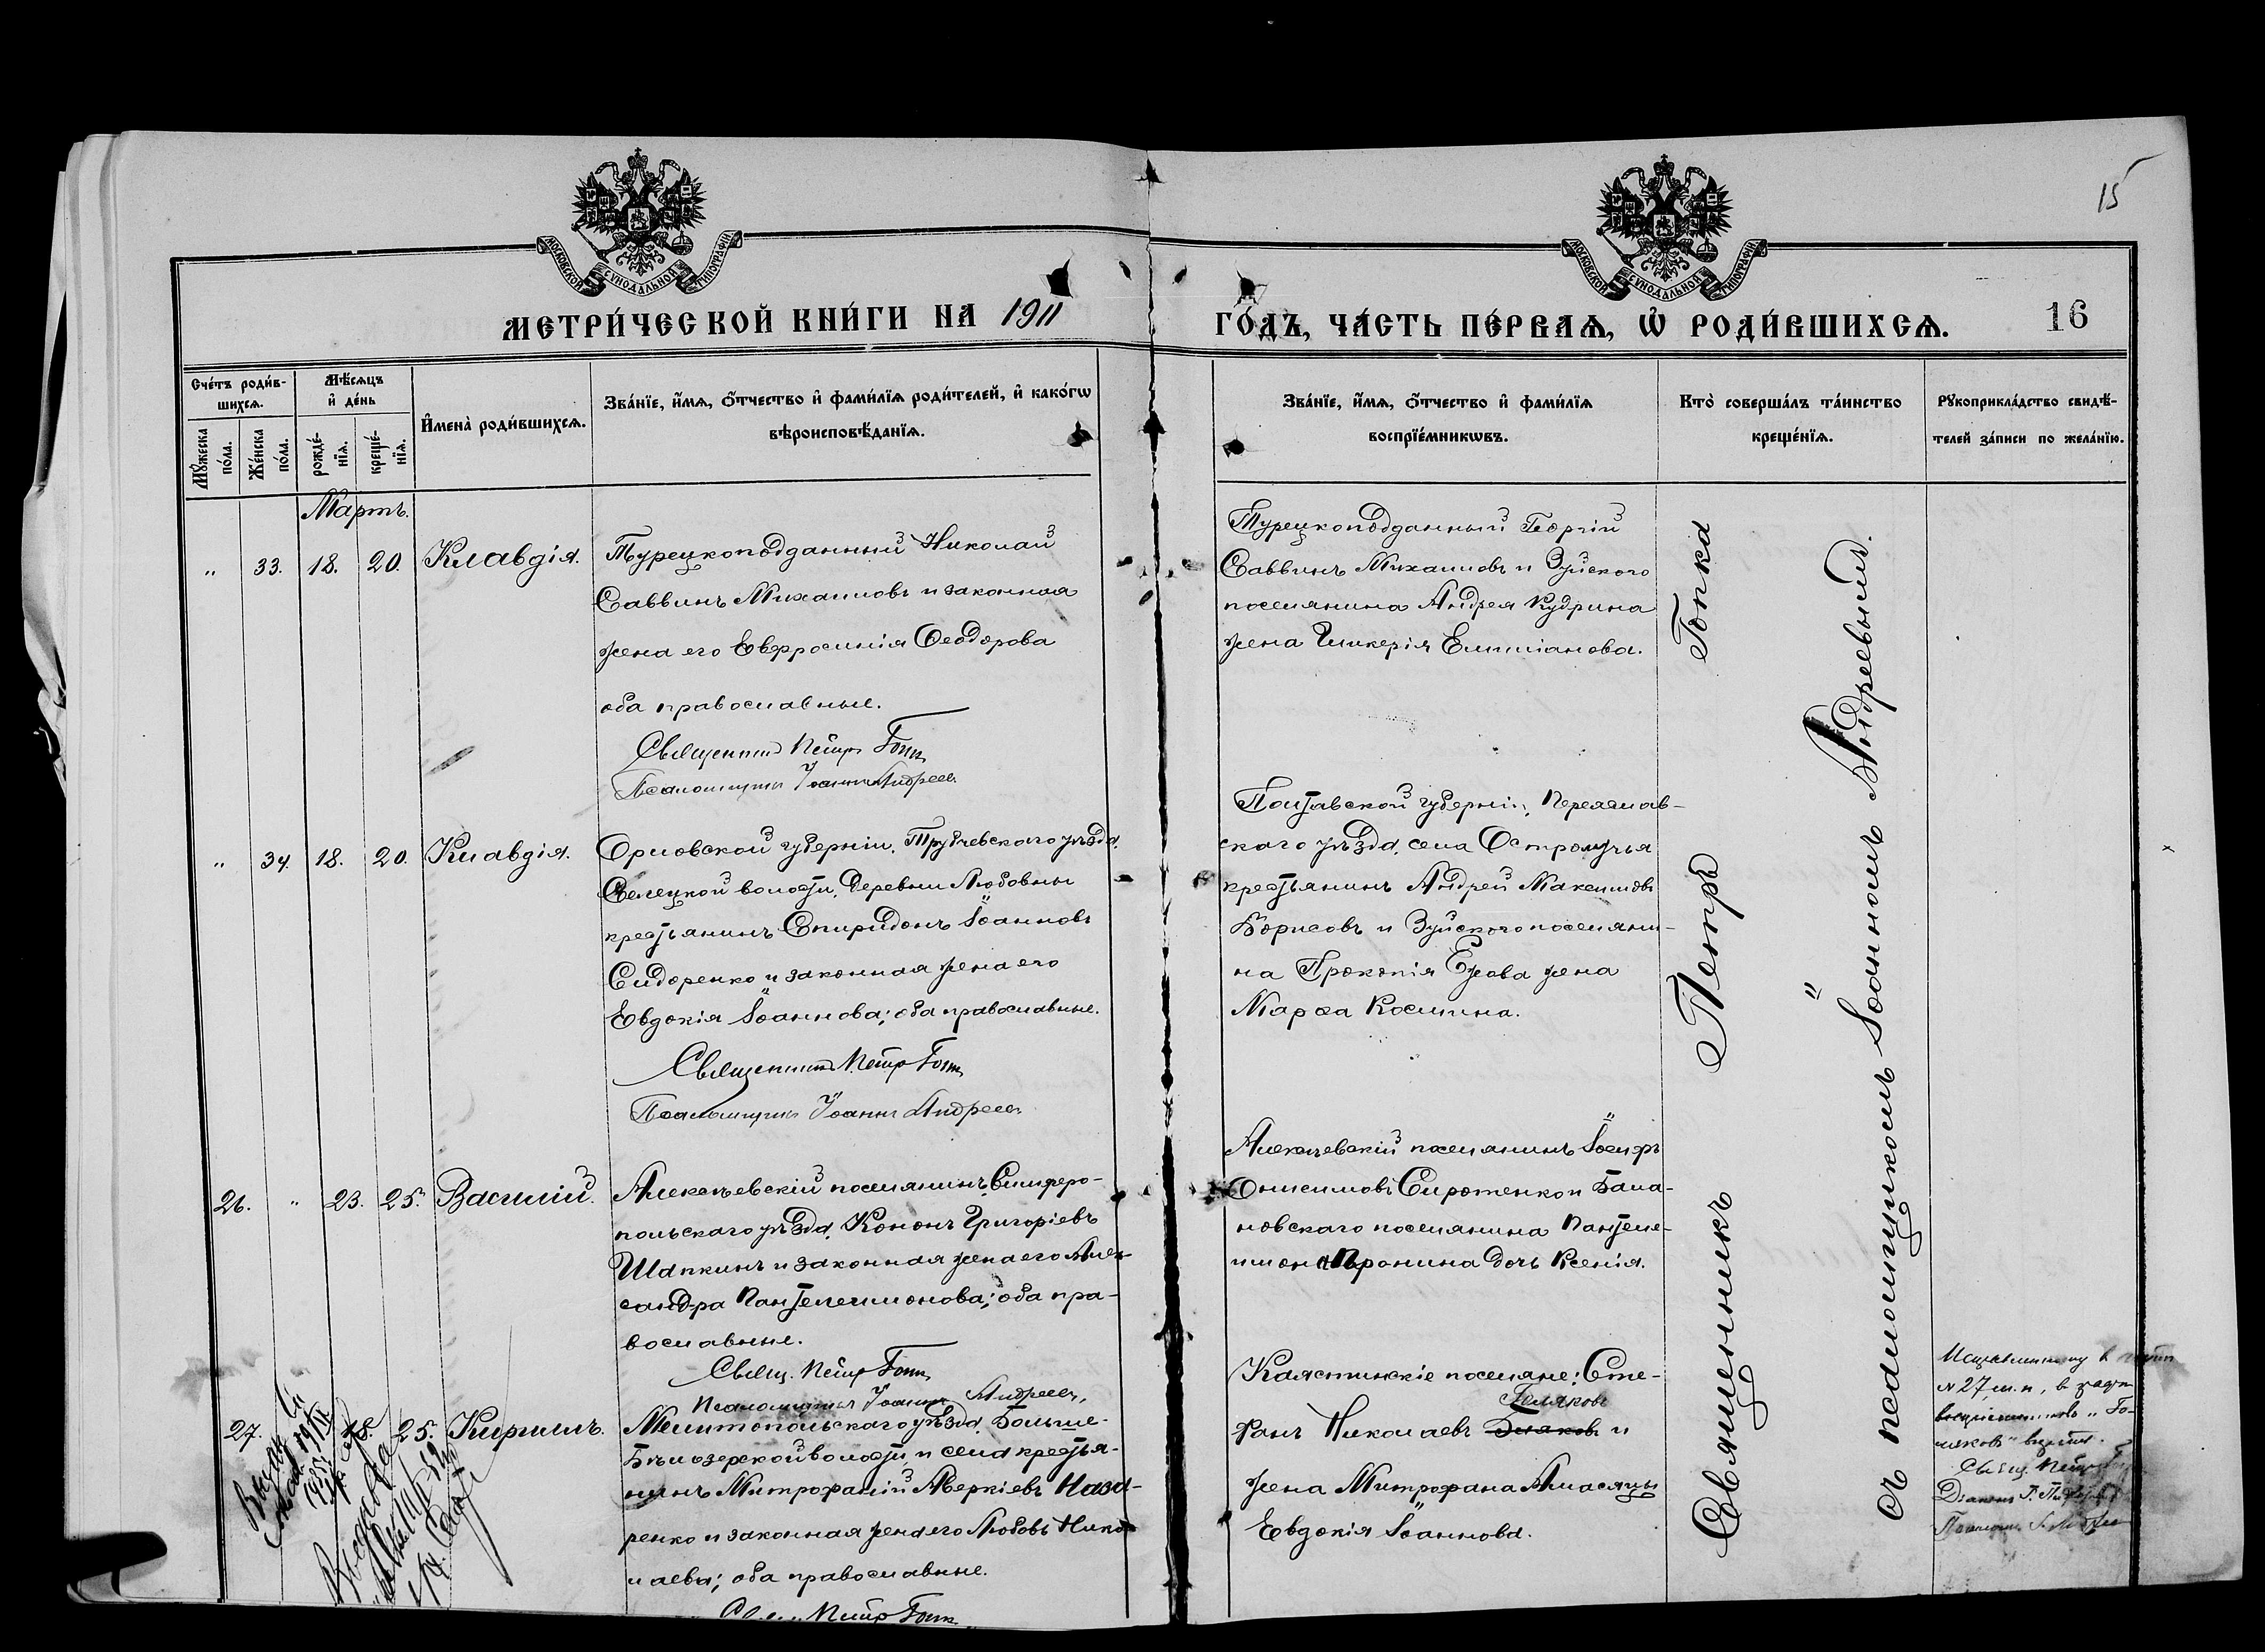 15
МОСКОВСКОЙ СУНОДАЛЬНОЙ ТИПОГРАФІИ
МОСКОВСКОЙ СУНОДАЛЬНОЙ ТИПОГРАФІИ
МЕТРИ́ЧЕСКОЙ КНИ́ГИ НА 1911
ГО́ДЪ, ЧА́СТЬ ПЕ́РВАѦ, Ѡ҆ РОДИ́ВШИХСѦ.
16
Сче́тъ роди́в-
шихсѧ.
Мѣ́сѧцъ
и҆ де́нь
И҆мена̀ роди́вшихсѧ.
Зва́нїе, и҆́мѧ, ѻ҆́тчество и҆ фами́лїѧ роди́телей, и҆ како́гѡ
вѣроисповѣ́данїѧ.
Мꙋ́жеска по́ла.
Же́нска по́ла.
рожде́-нїѧ.
креще́-нїѧ.
Зва́нїе, и҆́мѧ, ѻ҆́тчество и҆ фами́лїѧ
воспрїе́мникѡвъ.
Кто̀ соверша́лъ та́инство
креще́нїѧ.
Рꙋкоприкла́дство свидѣ́-
телей за́писи по жела́нїю.
Мартъ.
" 33. 18. 20. Клавдія.
Турецкоподданный Николай
Саввинъ Михаиловъ и законная
жена его Евфросинія Ѳеодорова
оба православные.
Священникъ Петръ Гопка
Псаломщикъ Іоаннъ Андреевъ
Турецкоподданный Георгій
Саввинъ Михаиловъ и Зуйского
поселянина Андрея Кудрина
жена Гликерія Емиліанова.
" 34. 18. 20. Клавдія.
Орловской губерніи, Трубчевского уѣзда,
Селецкой волости, деревни Любовны
крестьянинъ Спиридонъ Іоанновъ
Сидоренко и законная жена его
Евдокія Іоаннова; оба православные.
Священникъ Петръ Гопка
Псаломщикъ Іоаннъ Андреевъ
Полтавской губерніи, Переяслав-
скаго уѣзда, села Остролучья
крестьянинъ Андрей Максимовъ
Борисовъ и Зуйского поселяни-
на Прокопія Ежова жена
Марѳа Космина.
26. " 23. 25. Василій.
Алексѣевскій поселянинъ, Симферо-
польскаго уѣзда, Кононъ Григоріевъ
Шапкинъ и законная жена его Алек-
сандра Пантелеимонова; оба пра-
вославные.
Свящ. Петръ Гопка
Псаломщикъ Іоаннъ Андреевъ
Алексѣевскій поселянинъ Іосифъ
Онисимовъ Сиротенко и Бала-
новскаго поселянина Пантеле-
имона Пронина дочь Ксенія.
27. 18. 25. Кириллъ.
Мелитопольскаго уѣзда, Больше-
Бѣлозерской волости и села крестья-
нинъ Митрофаній Аверкіевъ Наза-
ренко и законная жена его Любовь Нико-
лаева; оба православные.
Петръ Гопка
Калястинскіе поселяне: Сте-
фанъ Николаевъ и
жена Митрофана Алмасяцы
Евдокія Іоаннова.
Священникъ Петръ Гопка
съ псаломщикомъ Іоанномъ Андреевымъ.
№ 27, м. п., в графе
Свящ. Петръ